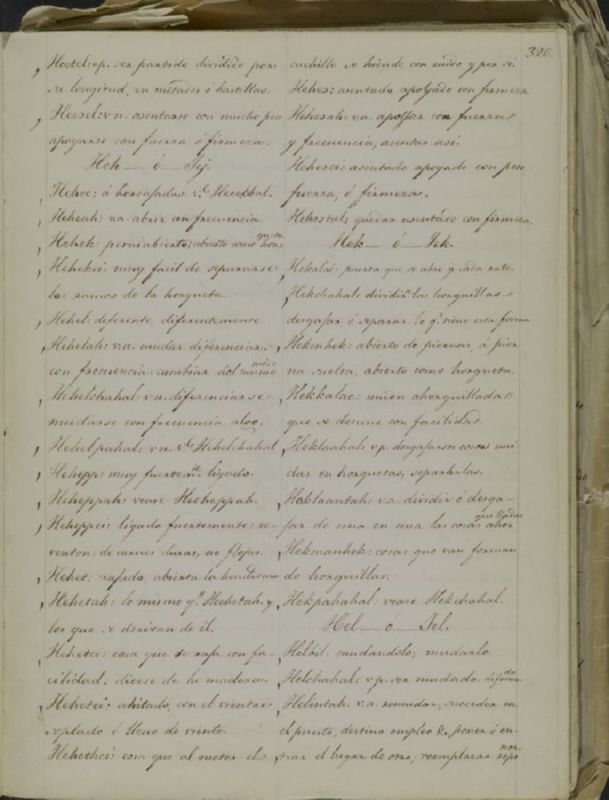 326.
Heetel: v.p. ser partido dividido por
su longitud, en mitades ó hastillas.
Heesel: v.n. asentarse con mucho peso
apoyarse con fuerza ó firmeza.
Heh — ó — Jej.
Hehec: á horcajadas. v.e
Heheah: va abrir con frecuencia.
Hehek: perniabierto; abierto como horqueta
Hehekci: muy facil de separarse
los ramos de la horqueta.
Hehel: diferente, diferentemente
Hehelah: v.a. mudar diferenciar
con frecuencia: cambiar del mismo modo
Hehelchahal: v.n. diferenciarse
mudarse con frecuencia algo.
Hehelpahal: v.n. v.e Hehelchahal
Hehepp: muy fuertem.te ligado.
Heheppah: vease Hecheppah.
Heheppci: ligado fuertemente: re-
venton: de carnes duras, no flojas.
Hehet: rajado, abierta la hendidura
Hehetah: lo mismo q.e Hehetah. y
los que se derivan de él.
Hehetci: cosa que se raja con fa-
cilidad: dicese de la madera.
ahitado, con el vientre
soplado ó lleno de viento.
Hehethci: cosa que al meter el
cuchillo se hiende con ruido y por si.
Hehez: asentado apoyado con firmeza
Hehezah: v.a. apoyar con fuerza
y frecuencia, asentar asi.
Hehezci: asentado apoyado con poca
fuerza, ó firmeza.
quedar asentado con firmeza.
Hek — ó — Jek.
Hekalac: puerta que se abre p. cada rato.
Hekchahal: dividir las horquillas
desgajar ó separar lo q.e tiene esta forma
Hekenhek: abierto de piernas, á pier
na suelta, abierto como horqueta.
Hekkalac: union ahorquillada
que se desune con facilidad.
Heklaahal: v.p. desgajarse cosas uni-
das en horquetas, separarlas.
Heklaantah: v.a. dividir ó desga-
jar de una en una las cosas ahorquilladas
Hekmanhek: cosas que van forman
do horquillas.
Hekpahahal: vease Hekchahal.
Hel — ó — Jel.
Helbil: mudandolo; mudarlo
Helchahal: v.p. ser mudado.
Helintah: v.a. remudar, suceder en
el puesto, destino empleo &. poner ó en-
trar el lugar de otro, reemplazar